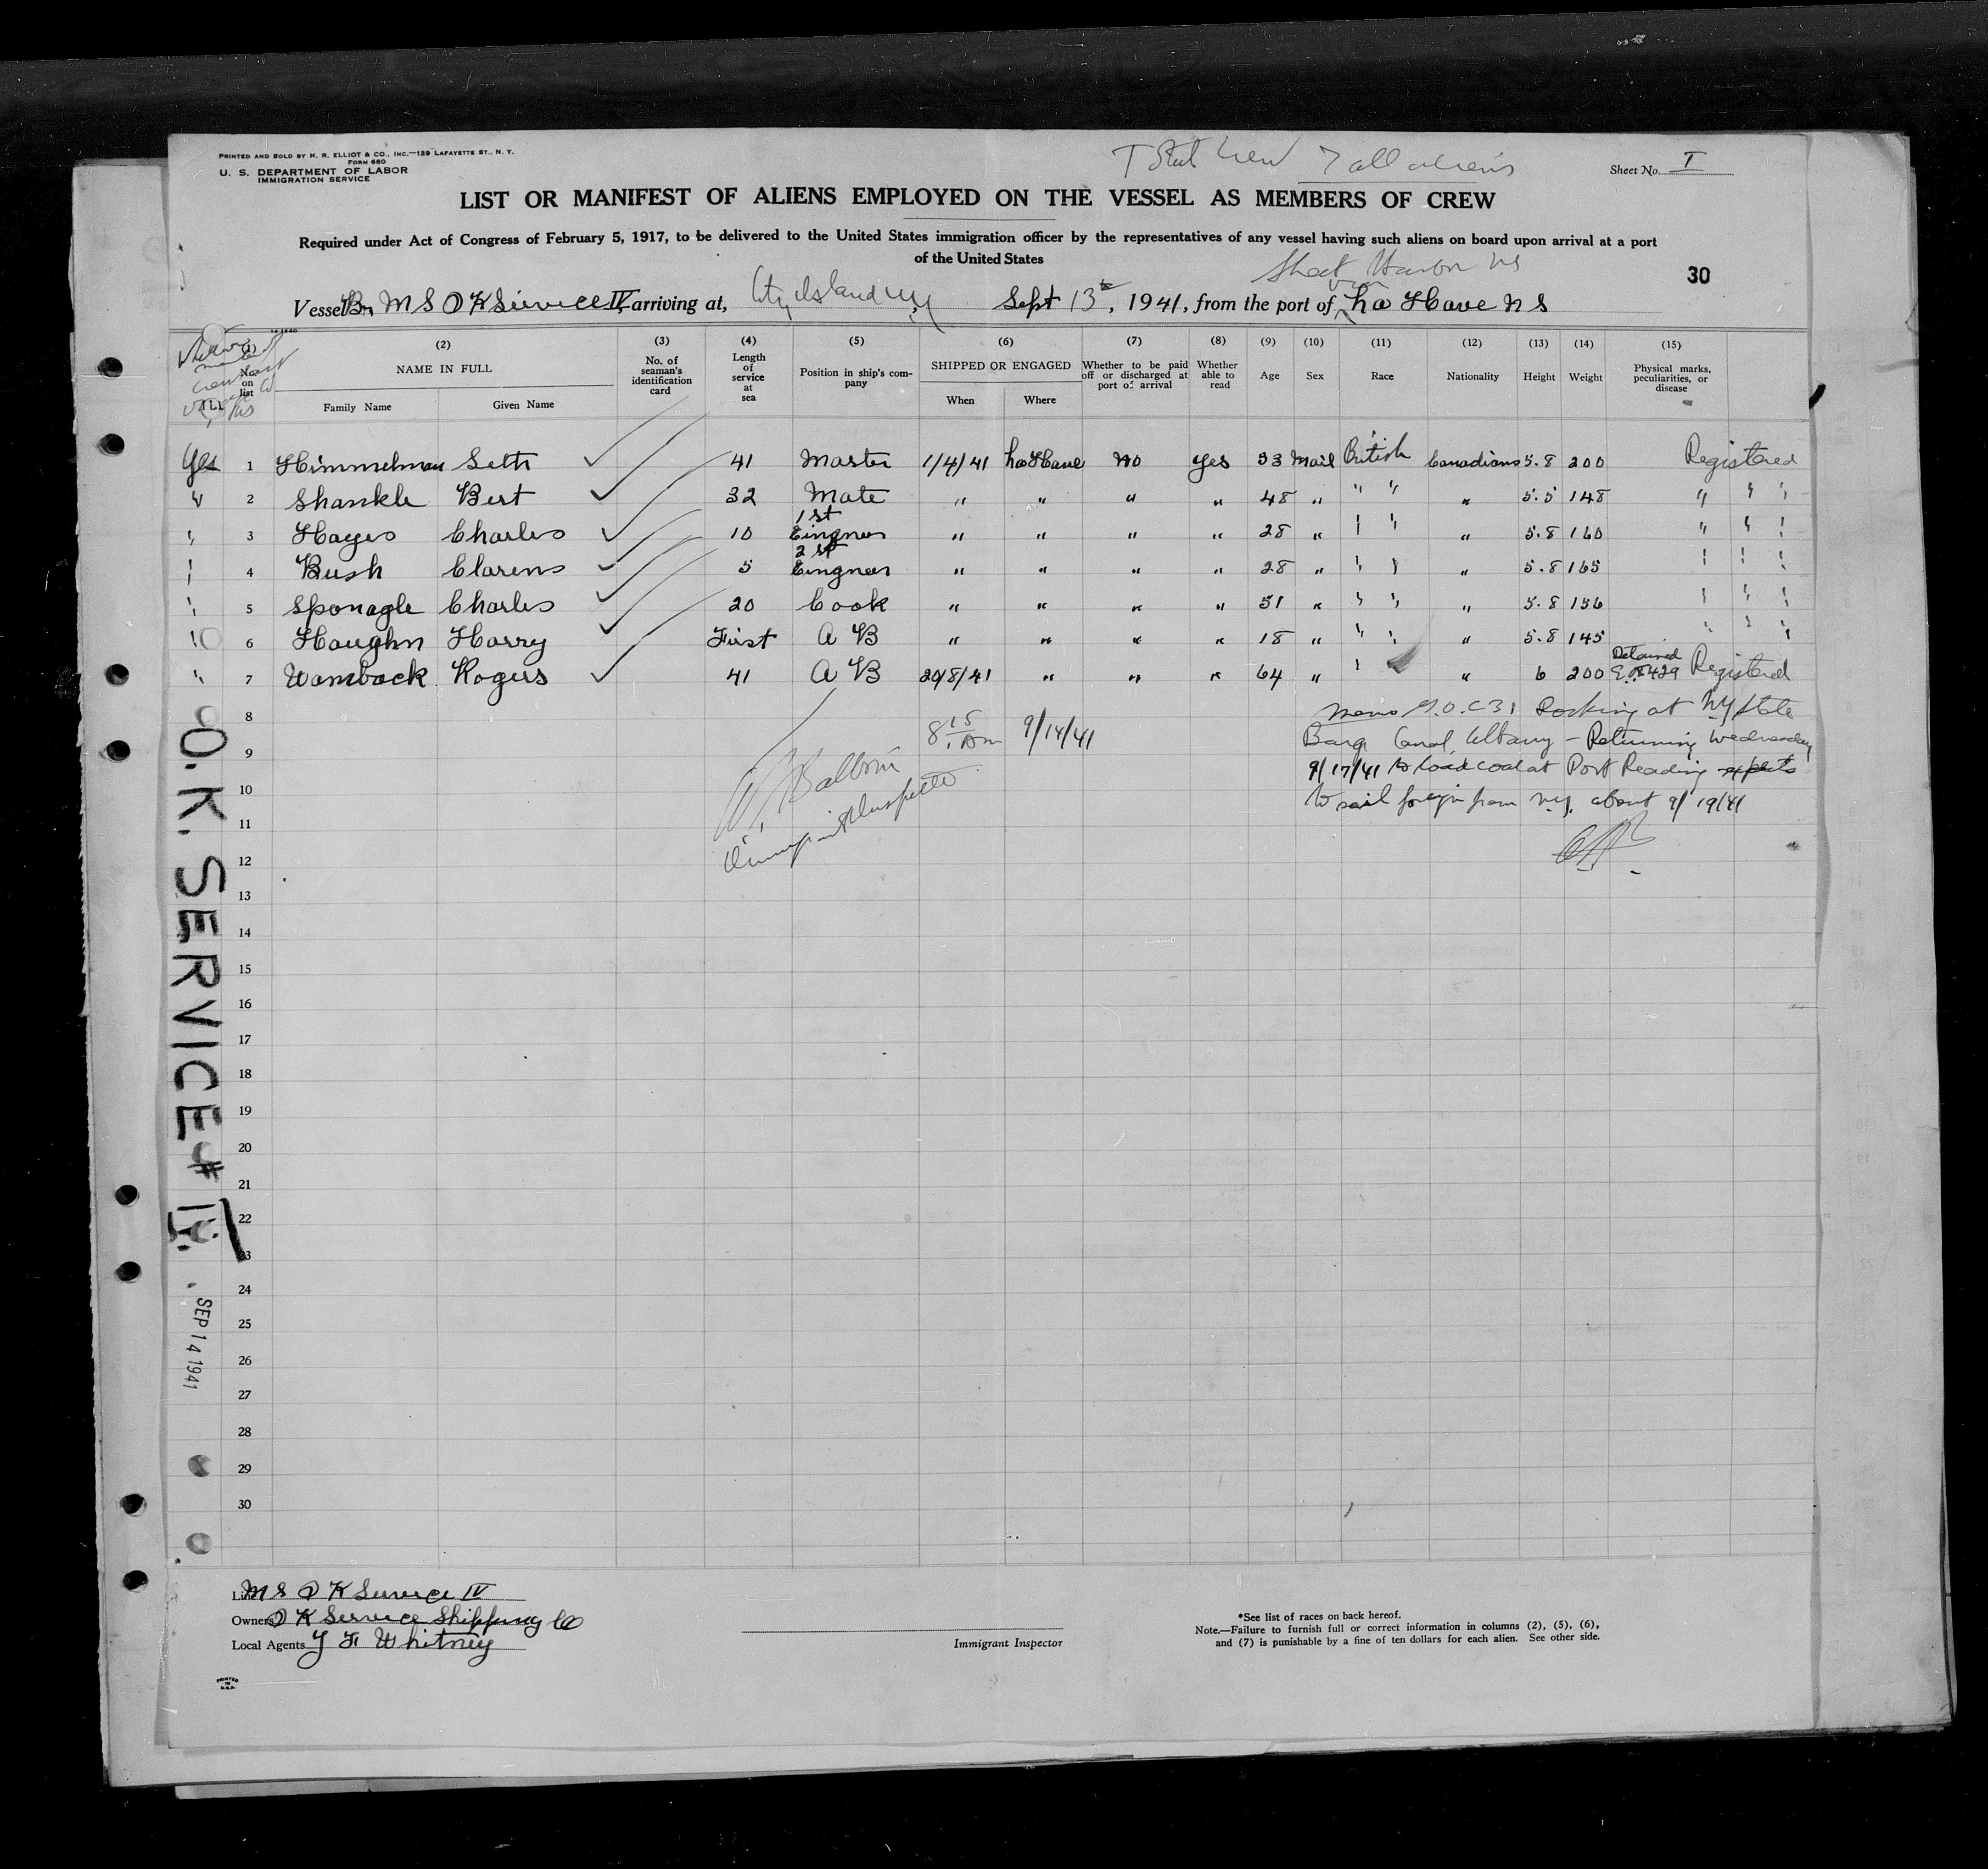 PRINTED AND SOLD BY H. R. ELLIOT & CO., INC.—129 LAFAYETTE ST., N. Y.
FORM 680
U. S. DEPARTMENT OF LABOR
IMMIGRATION SERVICE
Total Crew 7 all aliens
Sheet No. I
LIST OR MANIFEST OF ALIENS EMPLOYED ON THE VESSEL AS MEMBERS OF CREW
Required under Act of Congress of February 5, 1917, to be delivered to the United States immigration officer by the representatives of any vessel having such aliens on board upon arrival at a port
of the United States
Sheet Harbor NS
30
Vessel Br M S O K Service IV, arriving at, City Island NY, Sept 13th, 1941, from the port of via La Have N S
(1) (2) (3) (4) (5) (6) (7) (8) (9) (10) (11) (12) (13) (14) (15)
No. on list NAME IN FULL No. of seaman's identification card Length of service at sea Position in ship's company SHIPPED OR ENGAGED Whether to be paid off or discharged at port of arrival Whether able to read Age Sex Race Nationality Height Weight Physical marks, peculiarities, or disease
Family Name Given Name When Where
Yes 1 Himmelman Seth 41 Master 1/4/41 La Have No Yes 53 Mail British Canadians 5.8 200 Registered
" 2 Shankle Bert 32 Mate " " " " 48 " " " " 5.5 148 " " "
" 3 Hayes Charles 10 1st Eingner " " " " 28 " " " " 5.8 160 " " "
" 4 Bush Clarens 5 2st Eingner " " " " 28 " " " " 5.8 165 " " "
" 5 Sponagle Charles 20 Cook " " " " 51 " " " " 5.8 156 " " "
" 6 Haughn Harry First A B " " " " 18 " " " " 5.8 145 " " "
" 7 Wamback Rogers 41 A B 20/8/41 " " " 64 " " " 6 200 Detained Registered
8
9
10
11
12
13
14
15
16
17
18
19
20
21
22
23
24
25
26
27
28
29
30
8 15 AM 9/14/41
Immigrant Inspector
Docking at NY State
Barge Canal, Albany – Returning Wednesday
9/17/41 to load coal at Port Reading expects
to sail foreign from N.Y. about 9/19/41
O.K. SERVICE # IV.
SEP 14 1941
Line M S O K Service IV
Owners O K Service Shipping Co
Local Agents J F Whitney
Immigrant Inspector
*See list of races on back hereof.
Note.—Failure to furnish full or correct information in columns (2), (5), (6),
and (7) is punishable by a fine of ten dollars for each alien. See other side.
PRINTED IN U.S.A.